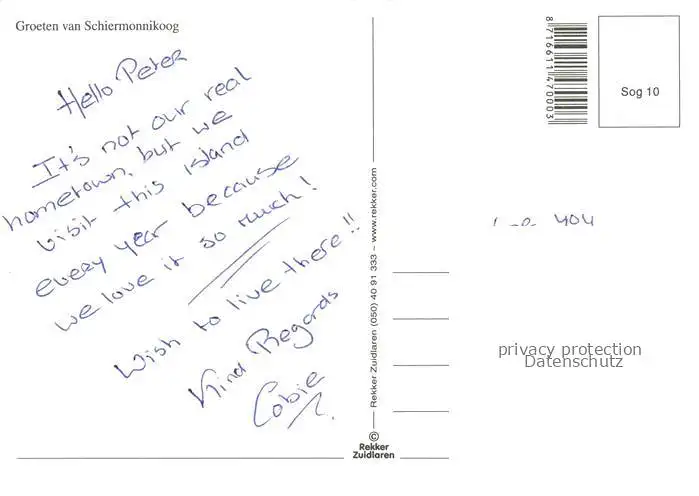 Groeten van Schiermonnikoog
Hello Peter
It's not our real
hometown, but we
visit this island
every year because
we love it so much!
Wish to live there!!
Kind Regards
Cobie
© Rekker Zuidlaren (050) 40 91 333 ~ www.rekker.com
©
Rekker
Zuidlaren
8 716611 470003
Sog 10
you
privacy protection
Datenschutz